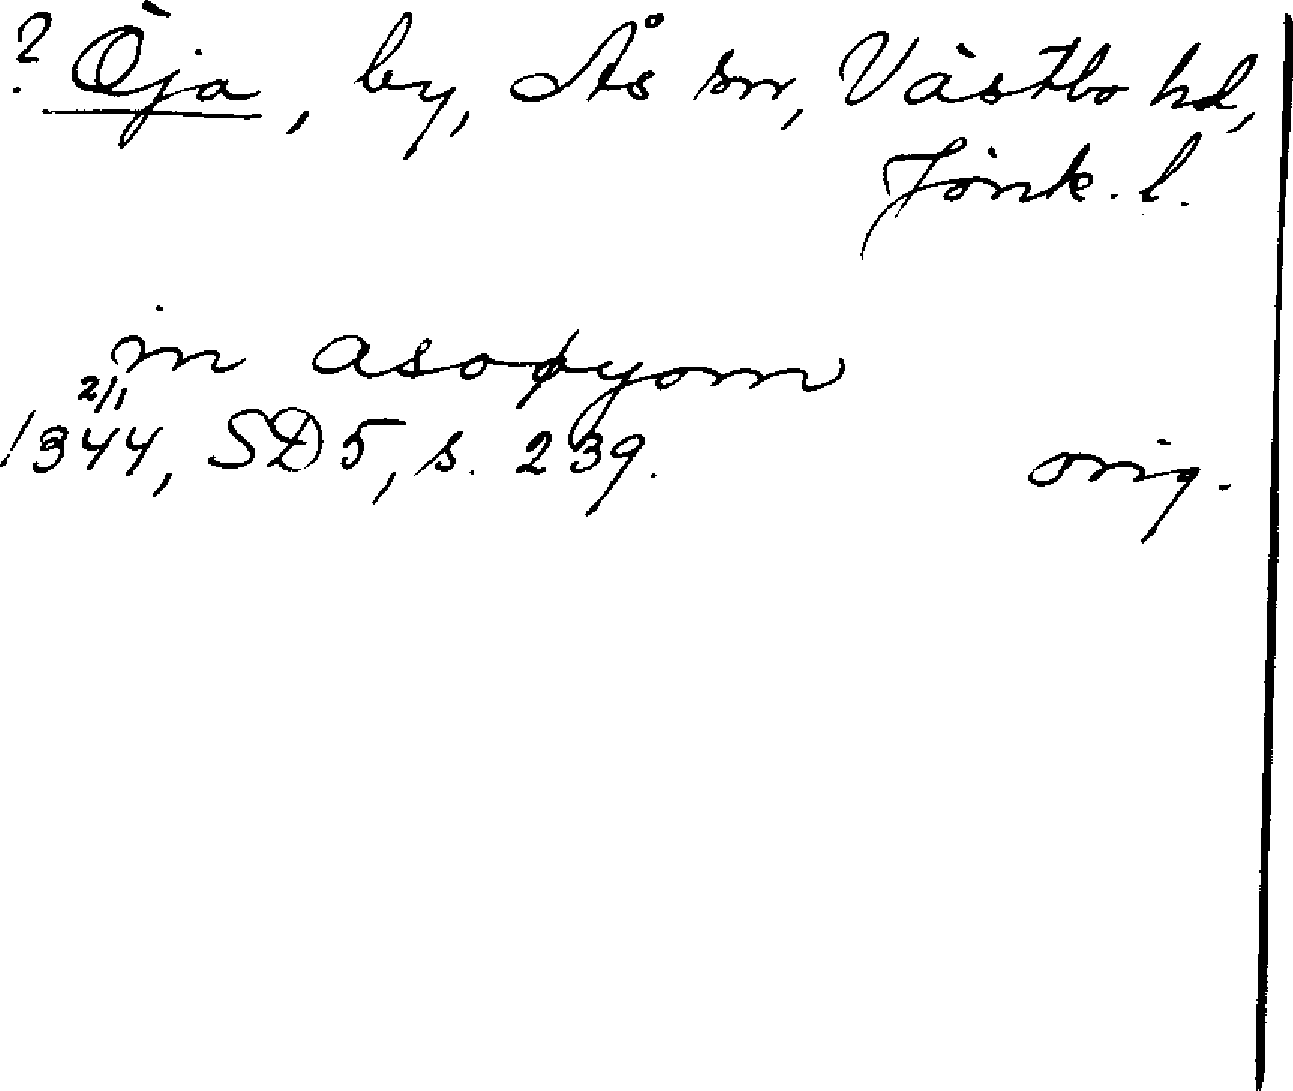 ? Öja, by, Ås sn, Västbo hd,
Jönk. l.
in asoøyom
2/1
1344, SD 5, s. 239. orig.